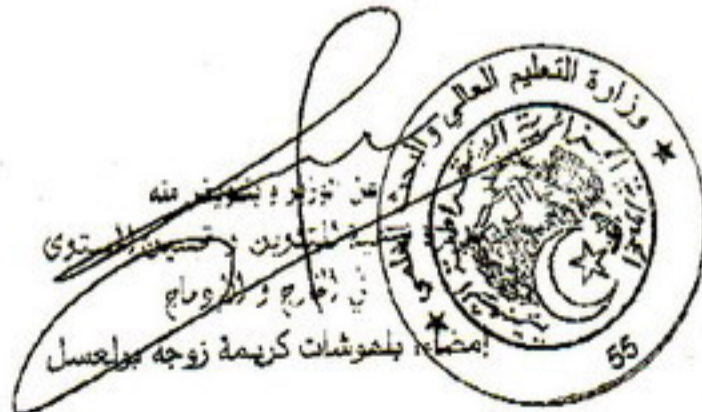 وزارة التعليم العالي والبحث العلمي
الجمهورية الجزائرية الديمقراطية الشعبية
55
عن الوزير و بتفويض منه
للتكوين و تحسين المستوى
في الخارج و الإدماج
إمضاء: بلهوشات كريمة زوجة بولعسل